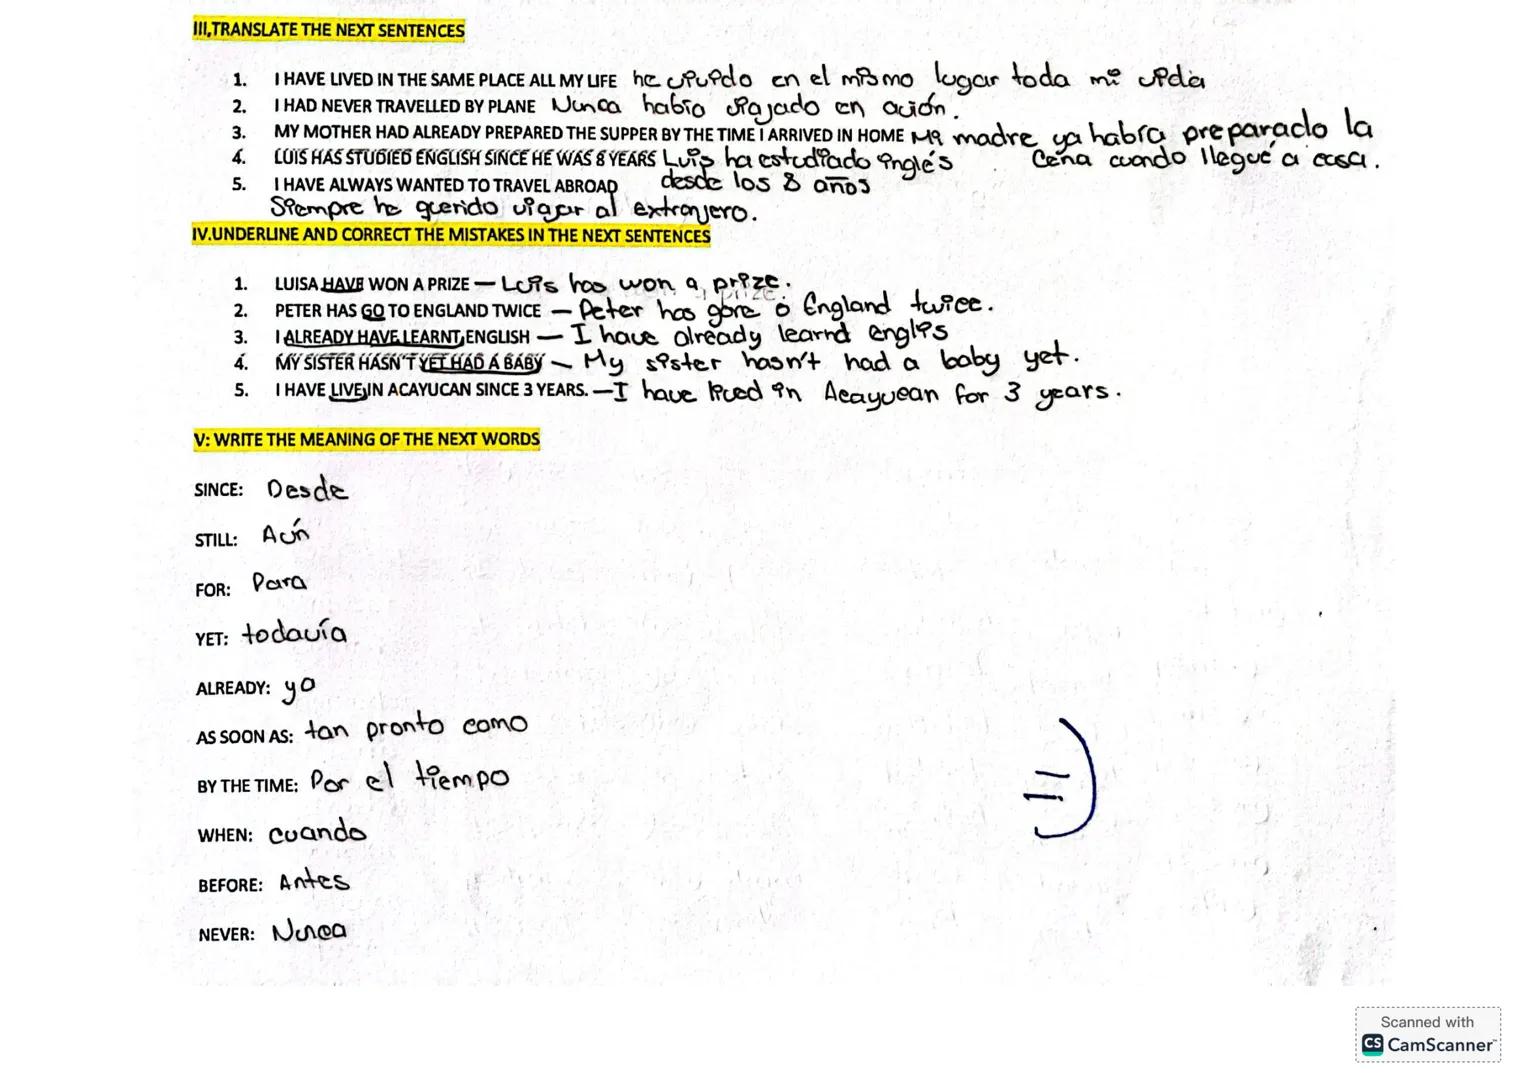 III,TRANSLATE THE NEXT SENTENCES
1. I HAVE LIVED IN THE SAME PLACE ALL MY LIFE he vivido en el mismo lugar toda mi vida
2. I HAD NEVER TRAVELLED BY PLANE Nunca había viajado en avión.
3. MY MOTHER HAD ALREADY PREPARED THE SUPPER BY THE TIME I ARRIVED IN HOME Mi madre ya habra preparado la
cena cuando llegué a casa.
4. LUIS HAS STUDIED ENGLISH SINCE HE WAS 8 YEARS Luis ha estudiado inglés
desde los 8 años
5. I HAVE ALWAYS WANTED TO TRAVEL ABROAD
Siempre he querido viajar al extranjero.
IV.UNDERLINE AND CORRECT THE MISTAKES IN THE NEXT SENTENCES
1. LUISA HAVE WON A PRIZE — Luis has won a prize.
2. PETER HAS GO TO ENGLAND TWICE — Peter has gone o England twice.
3. I ALREADY HAVE LEARNT ENGLISH — I have already learnd englis
4. MY SISTER HASN'T YET HAD A BABY — My sister hasn't had a baby yet.
5. I HAVE LIVE IN ACAYUCAN SINCE 3 YEARS. — I have lived in Acayucan for 3 years.
V: WRITE THE MEANING OF THE NEXT WORDS
SINCE: Desde
STILL: Aún
FOR: Para
YET: todavía
ALREADY: ya
AS SOON AS: tan pronto como
BY THE TIME: Por el tiempo
WHEN: cuando
BEFORE: Antes
NEVER: Nunca
=)
Scanned with
CS CamScanner